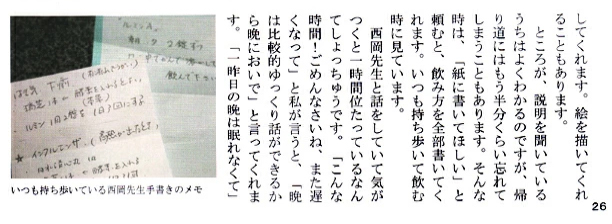 してくれます。絵を描いてくれ
ることもあります。
ところが、説明を聞いている
うちはよくわかるのですが、帰
り道にはもう半分くらい忘れて
しまうこともあります。そんな
時は、「紙に書いてほしい」と
頼むと、飲み方を全部書いてく
れます。いつも持ち歩いて飲む
時に見ています。
西岡先生と話をしていて気が
つくと一時間位たっているなん
てしょっちゅうです。「こんな
時間！ごめんなさいね、また遅
くなって」と私が言うと、「晩
は比較的ゆっくり話ができるか
ら晩においで」と言ってくれま
す。「一昨日の晩は眠れなくて」
ルミンA
朝 夕 2錠ずつ
飲んで下さい
ルミン 1日2錠を1日3回にする
★インフルエンザ
いつも持ち歩いている西岡先生手書きのメモ
26